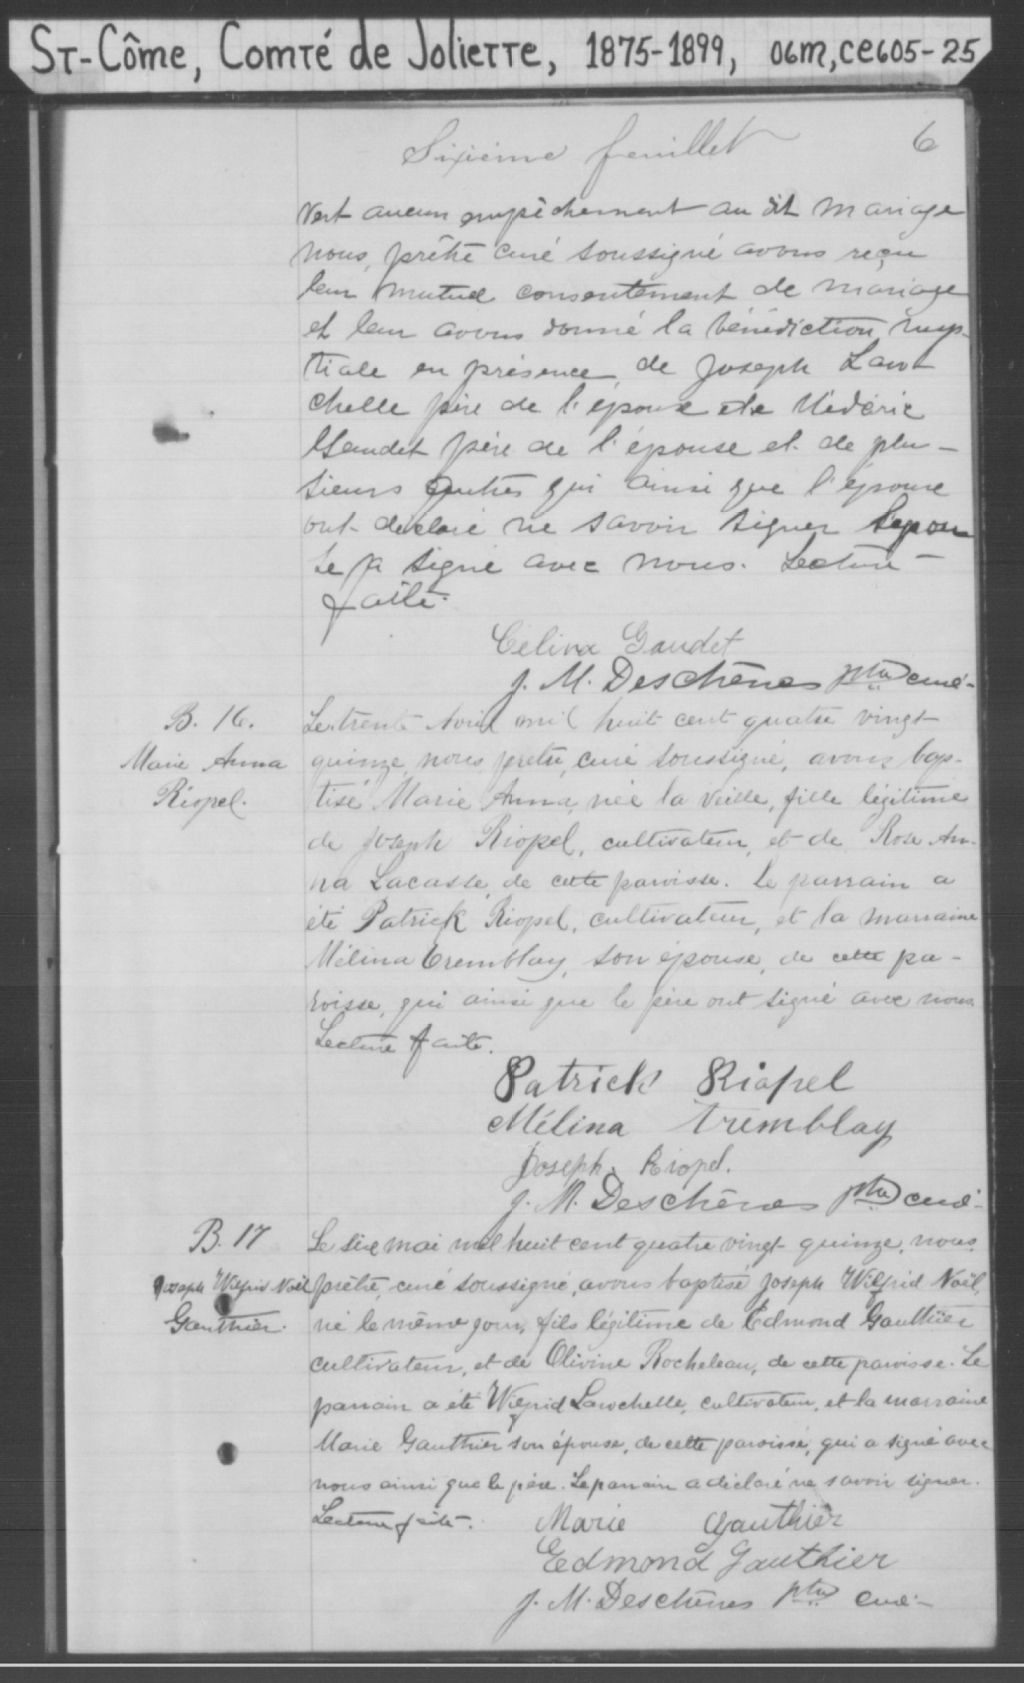 St-Côme, Comté de Joliette, 1875-1899, 06M, CE605-25
Sixième feuillet 6
vert aucun empêchement au dit mariage
nous, prêtre curé soussigné avons reçu
leur mutuel consentement de mariage
et leur avons donné la bénédiction nup-
tiale en présence de Joseph Laro-
chelle père de l'époux et de Médéric
Gaudet père de l'épouse et de plu-
sieurs autres qui ainsi que l'époux
ont déclaré ne savoir signer l'épou
se a signé avec nous. Lecture
faite.
Célina Gaudet
J. M. Deschênes ptre curé-
B. 16.
Marie Anna
Riopel.
Le trente Avril mil huit cent quatre vingt
quinze, nous prêtre, curé soussigné, avons bap-
tisé Marie Anna, née la veille, fille légitime
de Joseph Riopel, cultivateur, et de Rose An-
na Lacasse, de cette paroisse. Le parrain a
été Patrick Riopel, cultivateur, et la marraine
Mélina Tremblay, son épouse, de cette pa-
roisse, qui ainsi que le père ont signé avec nous.
Lecture faite.
Patrick Riopel
Mélina Tremblay
Joseph Riopel.
J. M. Deschênes ptre curé-
B. 17
Joseph Wilfrid Noël
Gauthier.
Le six mai mil huit cent quatre vingt quinze, nous
prêtre, curé soussigné, avons baptisé Joseph Wilfrid Noël,
né le même jour, fils légitime de Edmond Gauthier
cultivateur, et de Olivine Rocheleau, de cette paroisse. Le
parrain a été Wilfrid Larochelle, cultivateur, et la marraine
Marie Gauthier son épouse, de cette paroisse, qui a signé avec
nous ainsi que le père. Le parrain a déclaré ne savoir signer.
Lecture faite.
Marie Gauthier
Edmond Gauthier
J. M. Deschênes ptre curé-